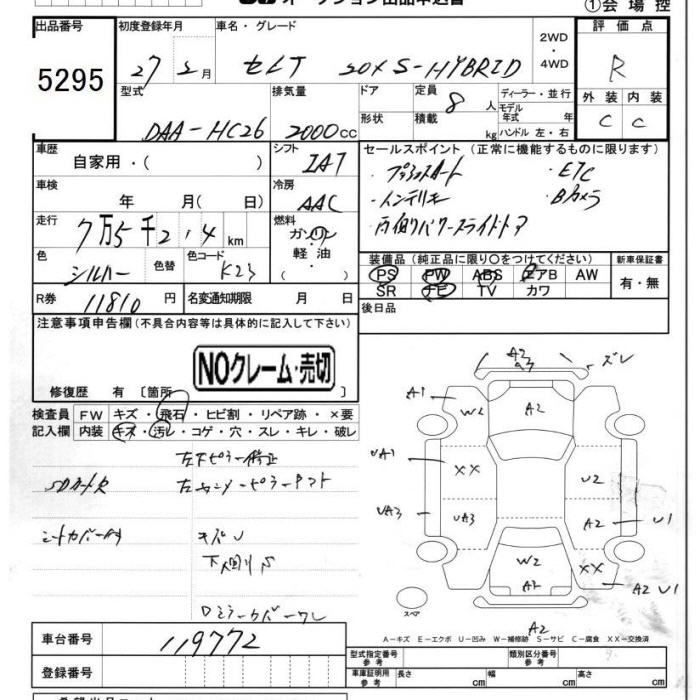 ①会場控
出品番号
5295
初度登録年月
27 2月
車名・グレード
セレナ 20X S-HYBRID
2WD
・
4WD
評価点
R
外装 内装
C C
型式
DAA-HC26
排気量
2000cc
ドア
形状
定員 8人
積載 kg
ディーラー・並行
モデル
年式 年
ハンドル 左・右
車歴
自家用・( )
シフト
IAT
車検
年 月( 日)
冷房
AAC
走行
7万5千2 4 km
燃料
ガソリン
軽油
( )
色
シルバー
色替
色コード
K23
R券 11810円
名変通知期限 月 日
セールスポイント (正常に機能するものに限ります)
・プッシュスタート ・ETC
・インテリキー ・Bカメラ
・両側パワースライドドア
装備品 (純正品に限り○をつけてください)
PS PW ABS エアB AW
SR ナビ TV カワ
新車保証書
有・無
後日品
注意事項申告欄(不具合内容等は具体的に記入して下さい)
NOクレーム・売切
修復歴 有 [箇所 ]
検査員
記入欄
FW キズ・飛石・ヒビ割・リペア跡・×要
内装 キズ・汚レ・コゲ・穴・スレ・キレ・破レ
左下ピラー修正
SDカード欠
シートカバー付
キバリ
下回りS
A2
A3
ズレ
A1
W2
A2
UA1
XX
U2
UA3
UA3
A2
U1
W2
XX
A2 U1
スペア
A2
A-キズ E-エクボ U-凹み W-補修跡 S-サビ C-腐食 XX-交換済
車台番号
119772
登録番号
型式指定番号
参考
類別区分番号
参考
車庫証明
参考
長さ cm
幅 cm
高さ cm